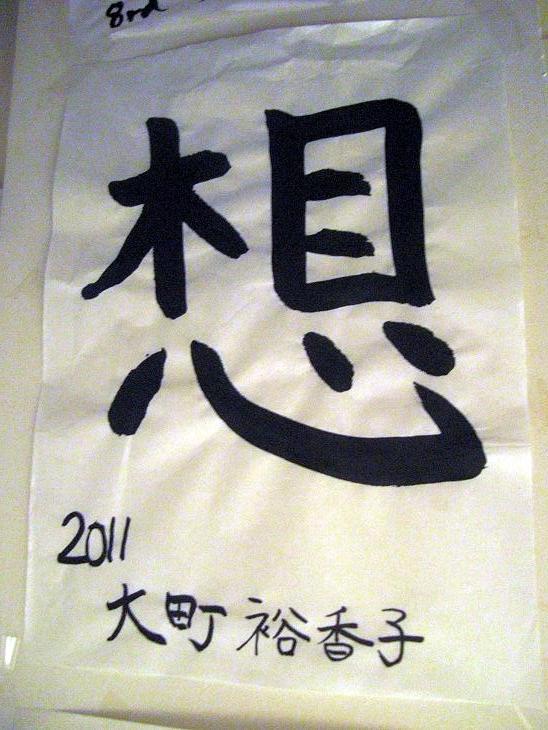 8rd
想
2011
大町裕香子